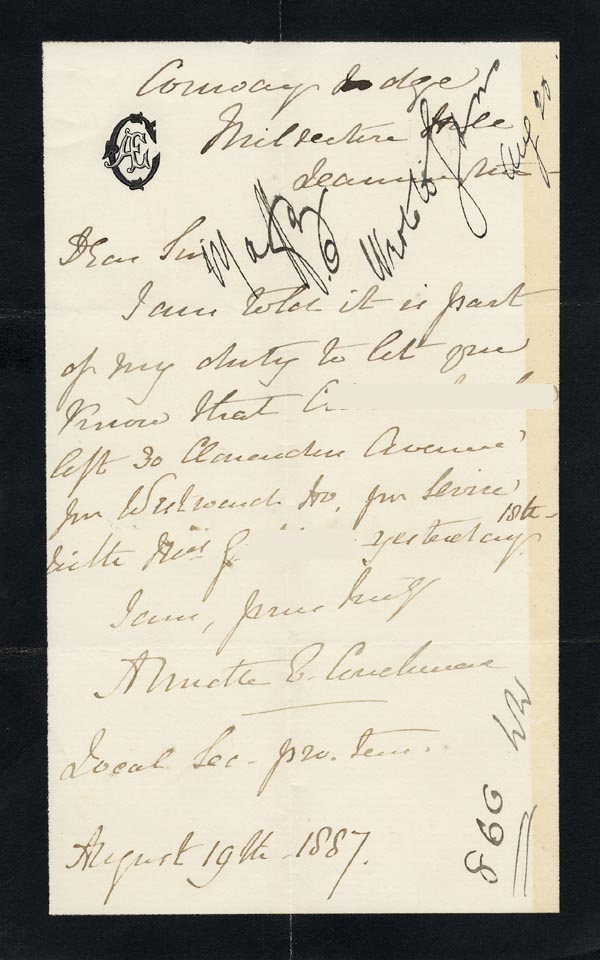 Conway Lodge
Milverton Hill
Leamington
AEC
Dear Sir
I am told it is part
of my duty to let you
know that
left 30 Clarendon Avenue
for Westward Ho, for service
18th
with yesterday
I am, yours truly
Annette E.
Local Sec - pro. tem.
August 19th - 1887.
Wrote to
Aug 20
866